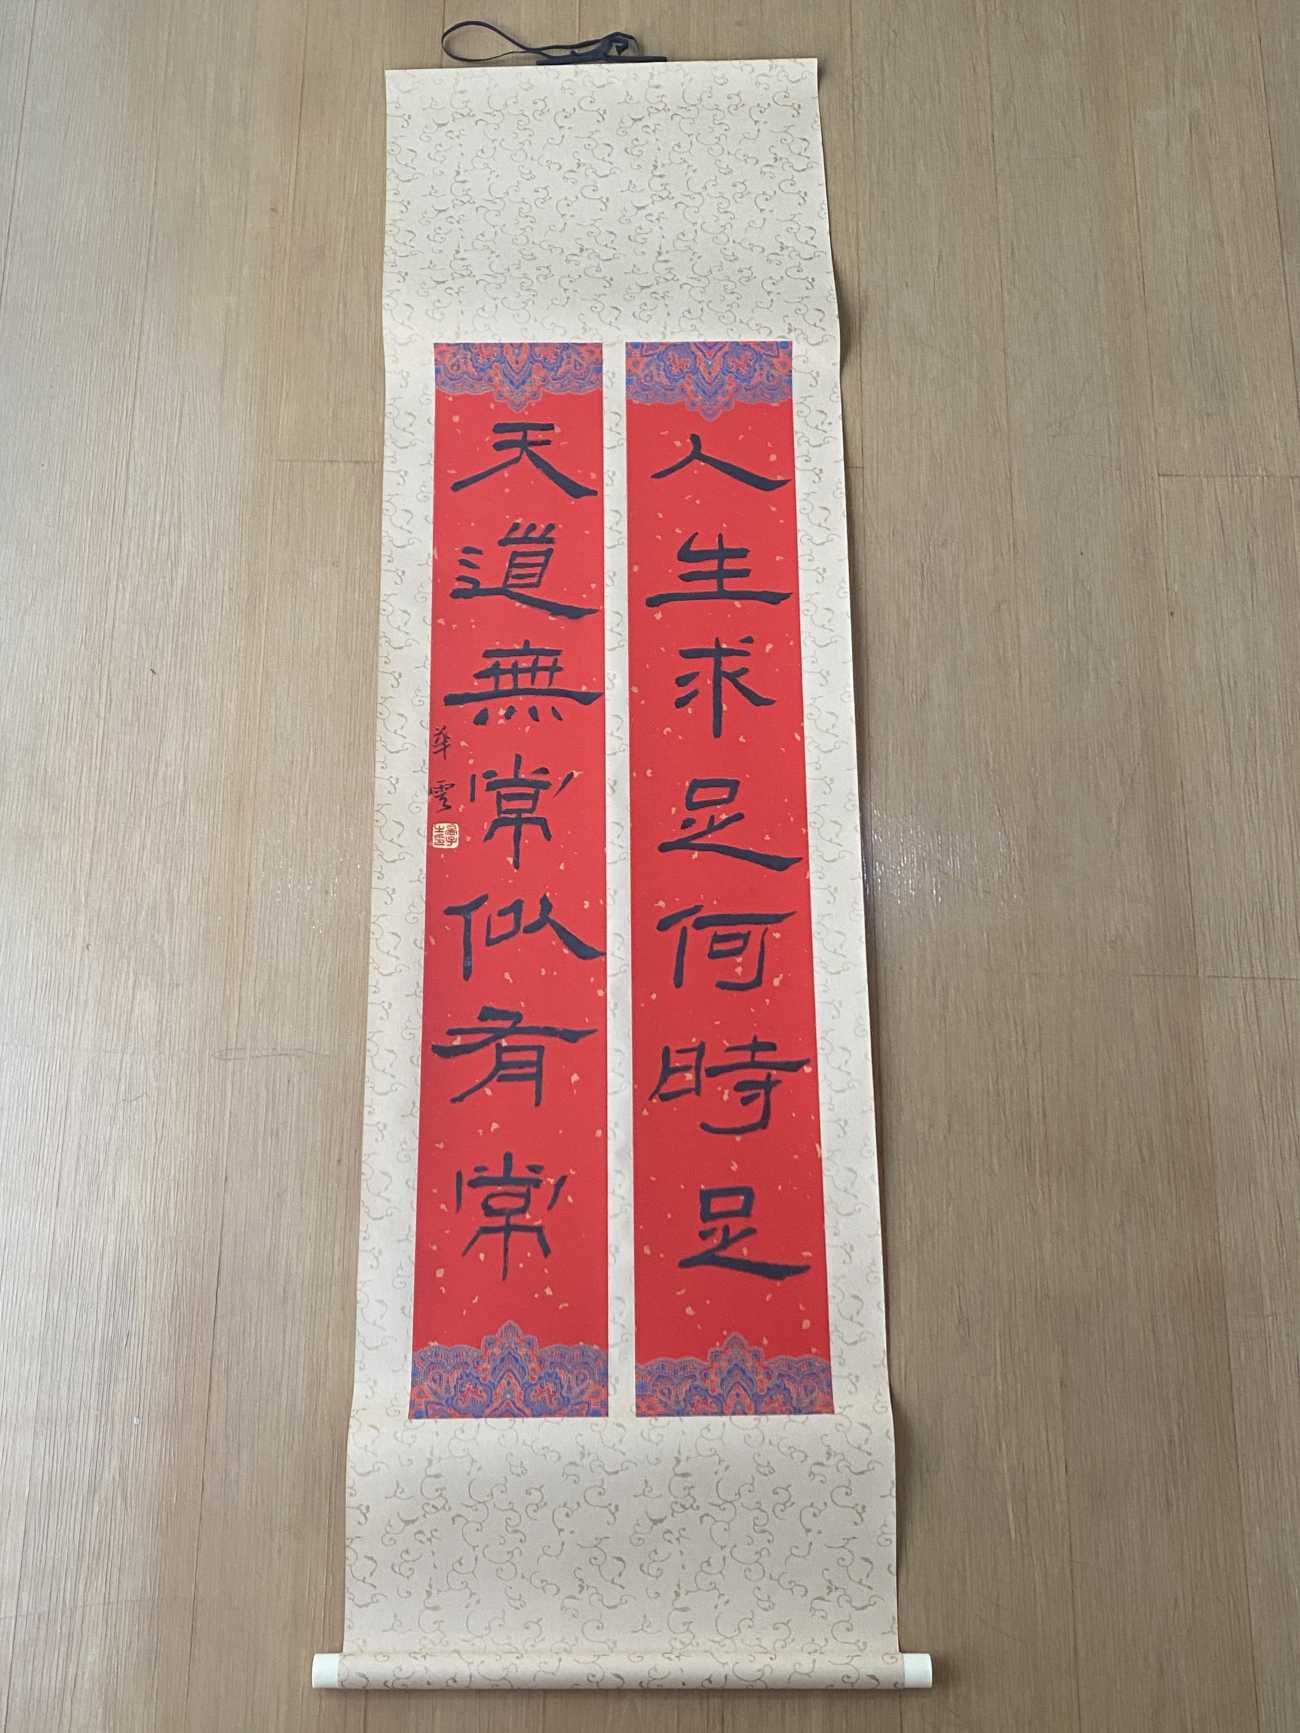 人生求足何時足
天道無常似有常
華雲